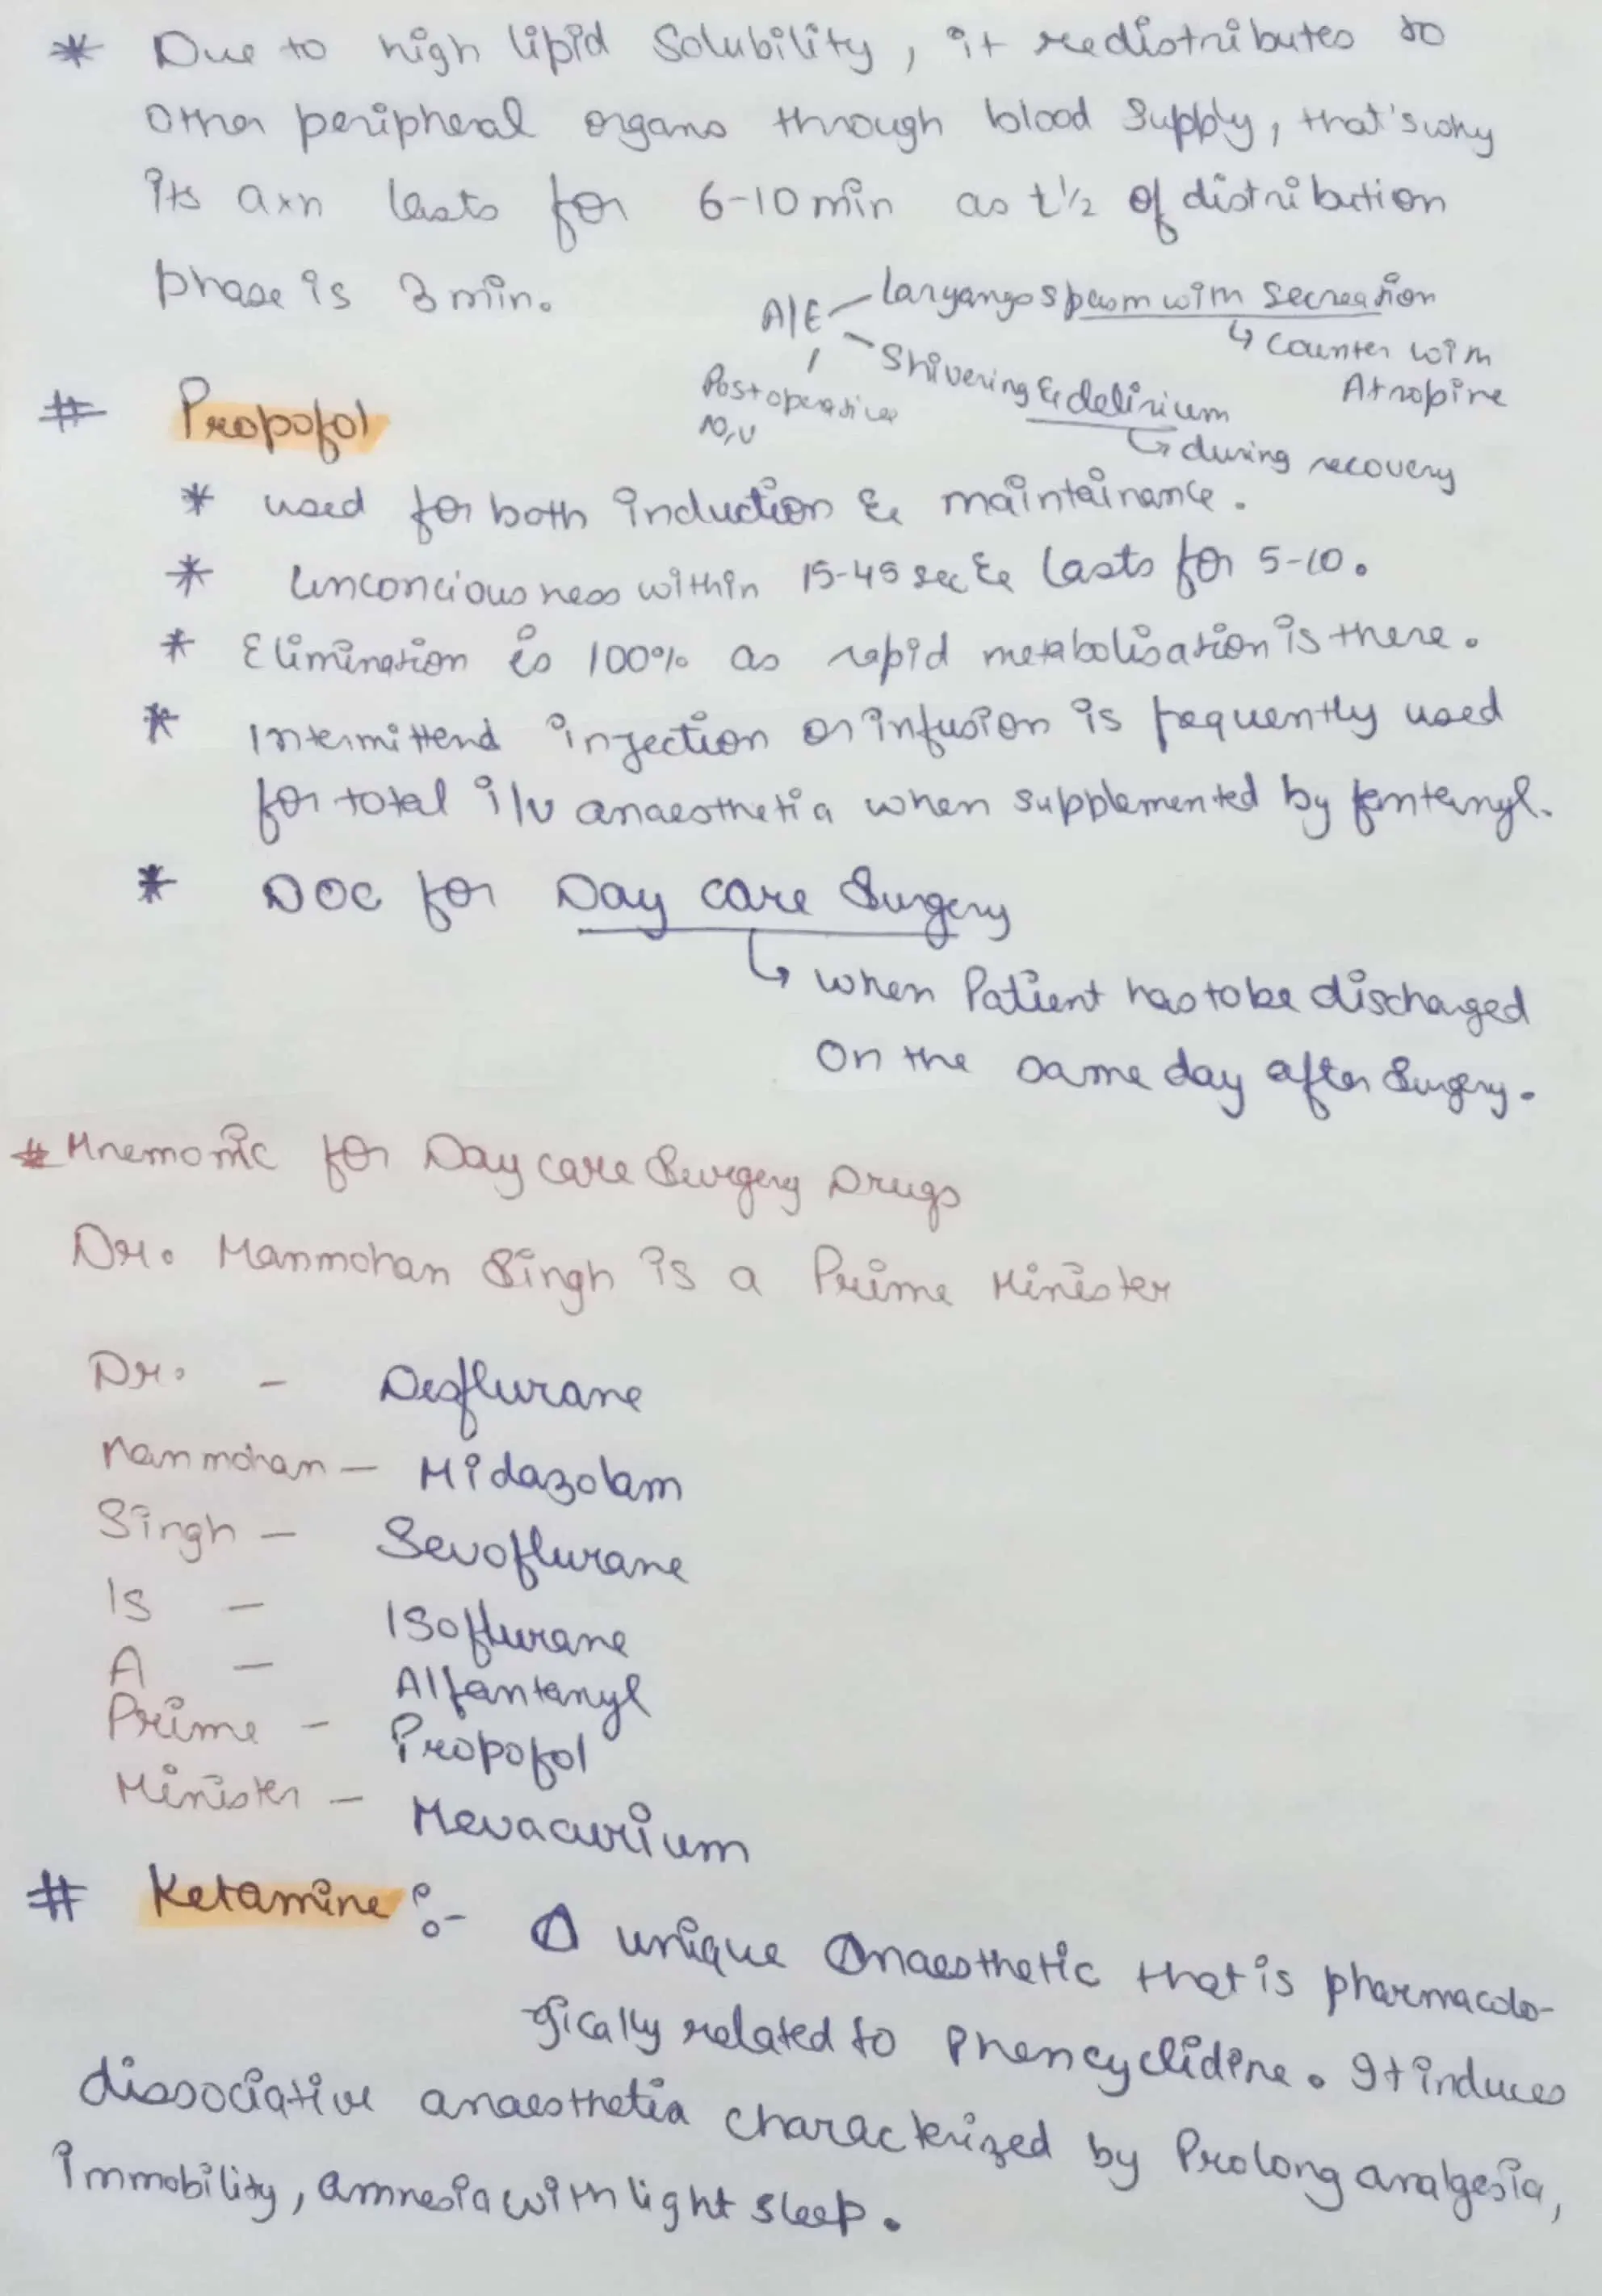 * Due to high lipid solubility, it redistributes to
other peripheral organs through blood supply, that's why
its axn lasts for 6-10 min as t½ of distribution
phase is 3 min.
A/E – Laryangospasm with secreation
↳ counter with
Atropine
Shivering & delirium
↳ during recovery
Postoperative
N,V
# Propofol
* used for both induction & maintainance.
* Unconciousness within 15-45 sec & lasts for 5-10.
* Elimination is 100% as rapid metabolisation is there.
* Intermittend injection or infusion is frequently used
for total i/v anaesthetia when supplemented by fentanyl.
* DOC for Day care Surgery
↳ when Patient has to be discharged
on the same day after Surgery.
# Mnemonic for Day care Surgery Drugs
Dr. Manmohan Singh is a Prime Minister
Dr. – Desflurane
Manmohan – Midazolam
Singh – Sevoflurane
Is – Isoflurane
A – Alfantanyl
Prime – Propofol
Minister – Mevacurium
# Ketamine :- A unique anaesthetic that is pharmacolo-
gically related to Phencyclidine. It induces
dissociative anaesthetia characterized by Prolong analgesia,
immobility, amnesia with light sleep.